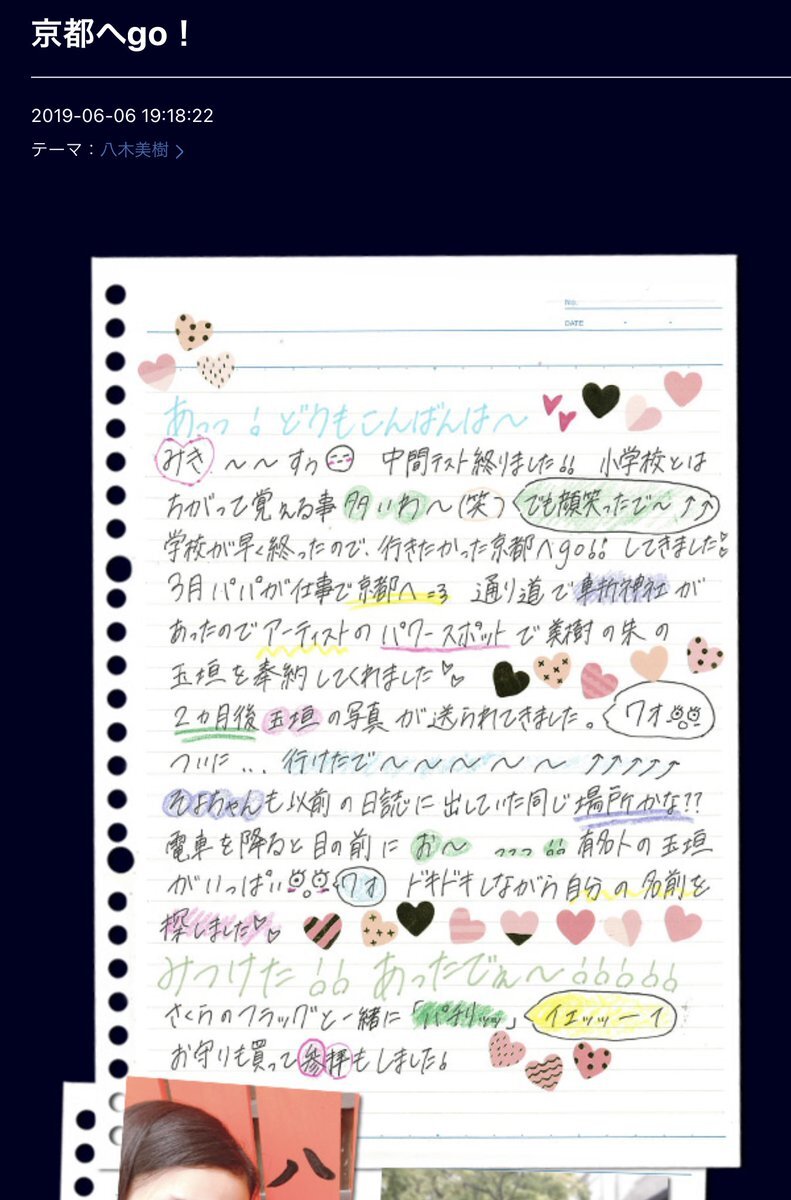 京都へgo！
2019-06-06 19:18:22
テーマ：八木美樹 >
No.
DATE
あっっ！どうもこんばんは〜
みき 〜〜すっ 中間テスト終りました!! 小学校とは
ちがって覚える事多いわ〜(笑) でも顔笑ったで〜↑↑
学校が早く終ったので、行きたかった京都へgo!! してきました
3月パパが仕事で京都へ=3 通り道で車折神社が
あったのでアーティストのパワースポットで美樹の朱の
玉垣を奉納してくれました
2ヵ月後玉垣の写真が送られてきました。 ワオ
ついに... 行けたで〜〜〜〜〜〜↑↑↑↑↑
そよちゃんも以前の日誌に出していた同じ場所かな??
電車を降ると目の前にお〜 っっっ!! 有名人の玉垣
がいっぱい ワオ ドキドキしながら自分の名前を
探しました
みつけた!! あったでぇ〜!!!!!
さくらのフラッグと一緒に「パチリッッ」 イエッッーイ
お守りも買って参拝もしました!
八